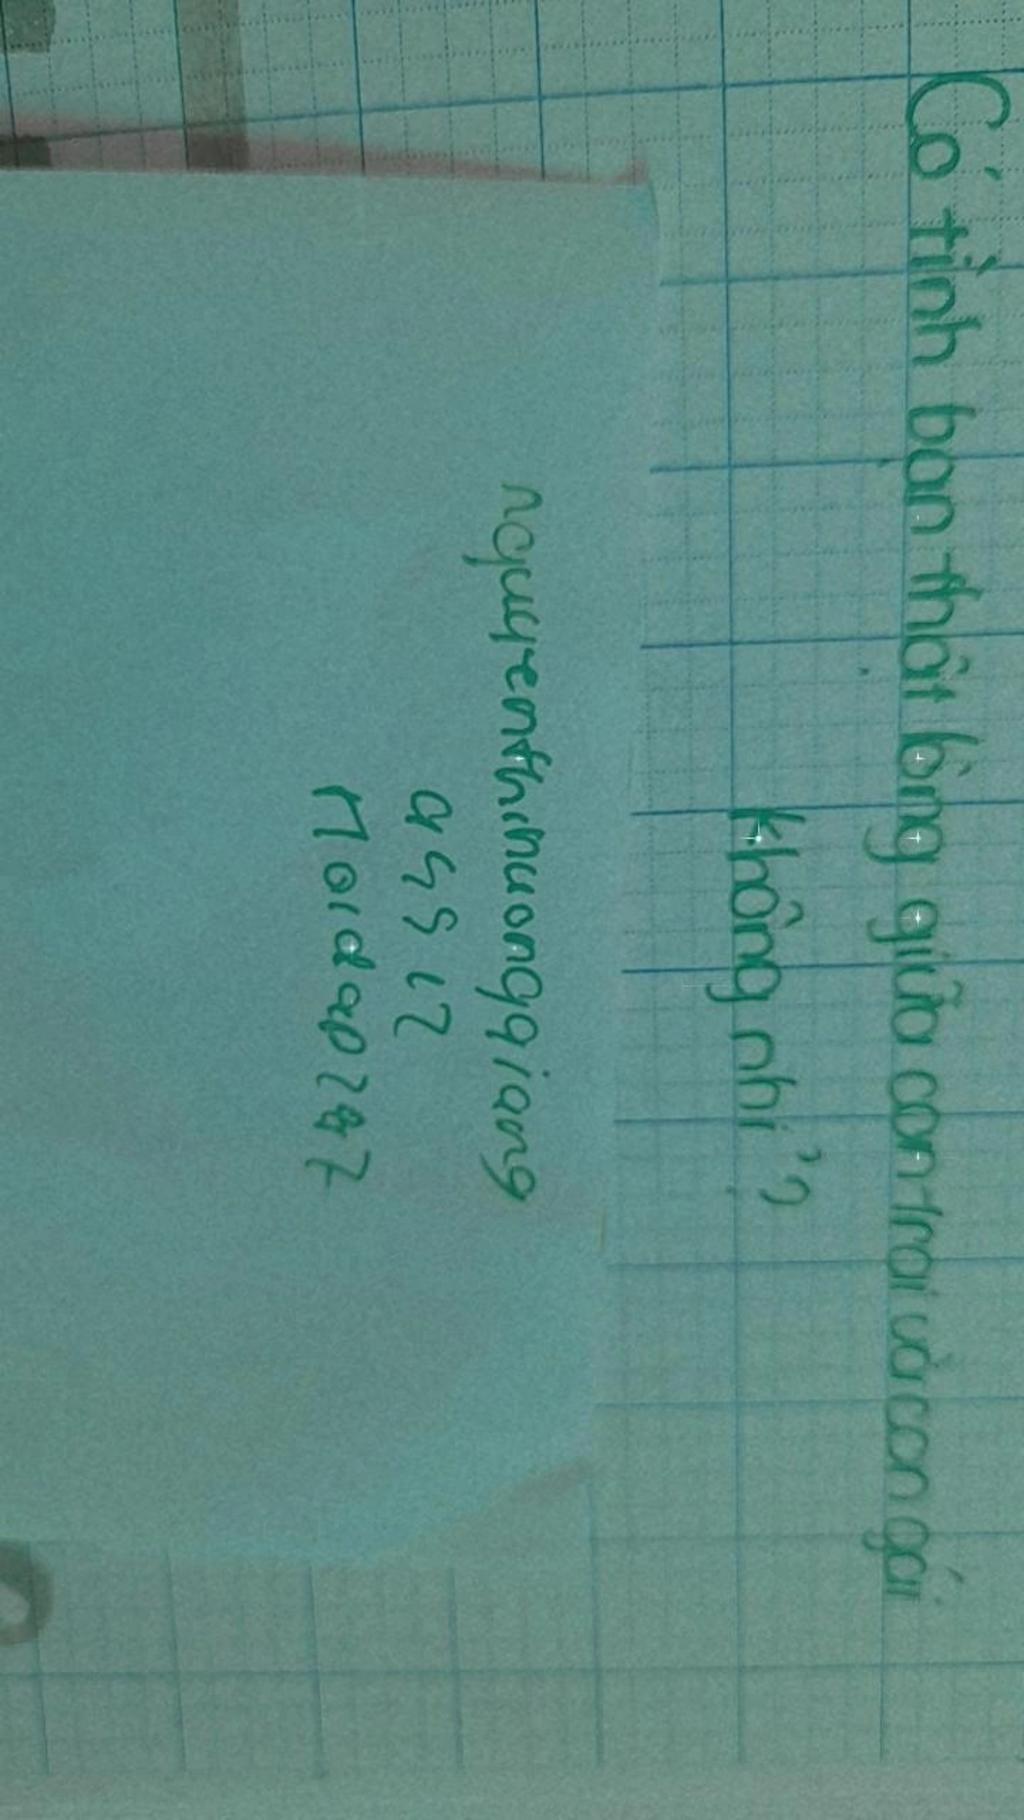 Có tình bạn thật lòng giữa con trai và con gái
không nhỉ?
nguyenthihuonggiang
a4512
Hoidap247